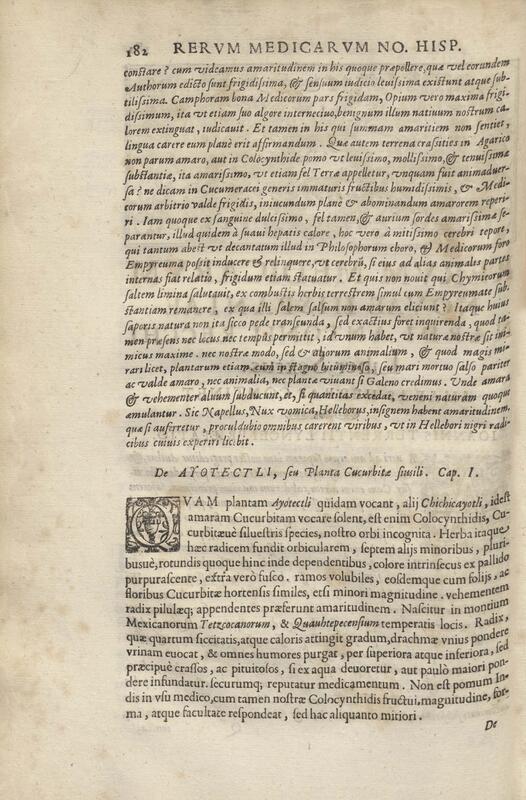 182 RERVM MEDICARVM NO. HISP.
constare? cum videamus amaritudinem in his quoque præpollere, quæ vel eorundem
Authorum edicto sunt frigidissima, & sensuum iudicio leuissima existunt atque sub-
tilissima. Camphoram bona Medicorum pars frigidam, Opium vero maxima frigi-
dissimum, ita vt etiam suo algore interneciuo, benignum illum natiuum nostrum ca-
lorem extinguat, iudicauit. Et tamen in his qui summam amaritiem non sentiet,
lingua carere eum planè erit affirmandum. Quæ autem terrena crassities in Agarico
non parum amaro, aut in Colocynthide pomo vt leuissimo, mollissimo, & tenuissimæ
substantiæ, ita amarissimo, vt etiam fel Terræ appelletur, vnquam fuit animaduer-
sa? ne dicam in Cucumeracei generis immaturis fructibus humidissimis, & Medi-
corum arbitrio valde frigidis, iniucundum planè & abominandum amarorem reperi-
ri. Iam quoque ex sanguine dulcissimo, fel tamen, & aurium sordes amarissimæ se-
parantur, illud quidem à suaui hepatis calore, hoc vero à mitissimo cerebri tepore,
qui tantum abest vt decantatum illud in Philosophorum choro, & Medicorum foro
Empyreuma possit inducere & relinquere, vt cerebrũ, si eius ad alias animalis partes
internas fiat relatio, frigidum etiam statuatur. Et quis non nouit qui Chymicorum
saltem limina salutauit, ex combustis herbis terrestrem simul cum Empyreumate sub-
stantiam remanere, ex qua illi salem salsum non amarum eliciunt? Itaque huius
saporis natura non ita sicco pede transeunda, sed exactius foret inquirenda, quod ta-
men præsens nec locus nec tempus permittit, id vnum habet, vt naturæ nostræ sit ini-
micus maxime. nec nostræ modo, sed & aliorum animalium, & quod magis mi-
rari licet, plantarum etiam. cum in stagno bituminoso, seu mari mortuo salso pariter
ac valde amaro, nec animalia, nec plantæ viuant si Galeno credimus. Unde amara
& vehementer aluum subducunt, et, si quantitas excedat, veneni naturam quoque
æmulantur. Sic Napellus, Nux vomica, Helleborus, insignem habent amaritudinem,
quæ si auferretur, proculdubio omnibus carerent viribus, vt in Hellebori nigri radi-
cibus cuiuis experiri licebit.
De AYOTECTLI, seu Planta Cucurbitæ siusili. Cap. I.
QVAM plantam Ayotectli quidam vocant, alij Chichicayotli, idest
amaram Cucurbitam vocare solent, est enim Colocynthidis, Cu-
curbitæuè siluestris species, nostro orbi incognita. Herba itaque
hæc radicem fundit orbicularem, septem alijs minoribus, pluri-
busuè, rotundis quoque hinc inde dependentibus, colore intrinsecus ex pallido
purpurascente, extra verò fusco. ramos volubiles, eosdemque cum folijs, ac
floribus Cucurbitæ hortensis similes, etsi minori magnitudine. vehementem
radix pilulæq; appendentes præferunt amaritudinem. Nascitur in montium
Mexicanorum Tetzcocanorum, & Quauhtepecensium temperatis locis. Radix,
quæ quartum siccitatis, atque caloris attingit gradum, drachmæ vnius pondere
vrinam euocat, & omnes humores purgat, per superiora atque inferiora, sed
præcipuè crassos, ac pituitosos, si ex aqua deuoretur, aut paulò maiori pon-
dere infundatur. securumq; reputatur medicamentum. Non est pomum In-
dis in vsu medico, cum tamen nostræ Colocynthidis fructui, magnitudine, for-
ma, atque facultate respondeat, sed hac aliquanto mitiori.
De